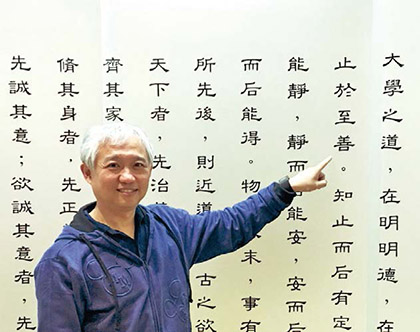 大學之道，在明明德，在
止於至善。知止而后有定
能靜，靜而能安，安而后
而后能得。物末，事有
所先後，則近道古之欲
天下者，先治
齊其家
脩其身者，先正
先誠其意；欲誠其意者，先